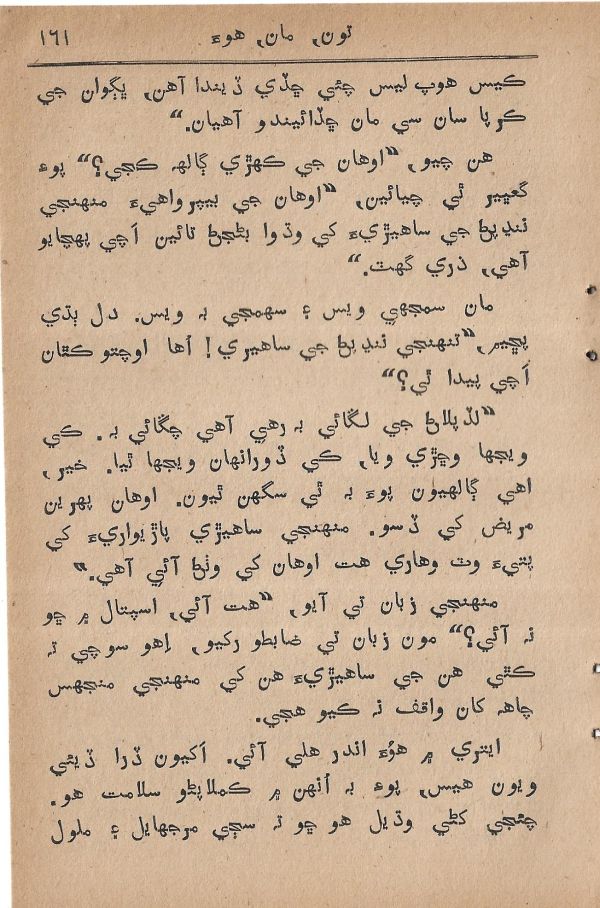 تون، مان، هوءَ
١٦١
ڪيس هوپ ليس چئي ڇڏي ڏيندا آهن، ڀڳوان جي
ڪرپا سان سي مان ڇڏائيندو آهيان.“
هن چيو، ”اوهان جي ڪهڙي ڳالهہ ڪجي؟“ پوءِ
گهمبير ٿي چيائين، ”اوهان جي بيپرواهيءَ منهنجي
ننڍپڻ جي ساهيڙيءَ کي وڌوا بڻجڻ تائين اَچي پهچايو
آهي، ذري گهٽ.“
مان سمجهي ويس ۽ سهمجي بہ ويس. دل ٻڌي
پڇيم، ”تنهنجي ننڍپڻ جي ساهيڙي! اُها اوچتو ڪٿان
اَچي پيدا ٿي؟“
”لڏپلاڻ جي لڳائي بہ رهي آهي چڱائي بہ. ڪي
ويجها وڇڙي ويا، ڪي ڏورانهان ويجها ٿيا. خير،
اهي ڳالهيون پوءِ بہ ٿي سگهن ٿيون. اوهان پهرين
مريض کي ڏسو. منهنجي ساهيڙي پاڙيواريءَ کي
پتيءَ وٽ وهاري هت اوهان کي وٺڻ آئي آهي.“
منهنجي زبان تي آيو، ”هت آئي، اسپتال ۾ ڇو
نہ آئي؟“ مون زبان تي ضابطو رکيو، اِهو سوچي تہ
ڪٿي هن جي ساهيڙيءَ هن کي منهنجي منجهس
چاهہ کان واقف نہ ڪيو هجي.
ايتري ۾ هوُءَ اندر هلي آئي. اَکيون ڏرا ڏيئي
ويون هيس، پوءِ بہ اُنهن ۾ ڪملاپڻو سلامت هو.
چئجي کڻي وڌيل هو ڇو تہ سڄي مرجهايل ۽ ملول